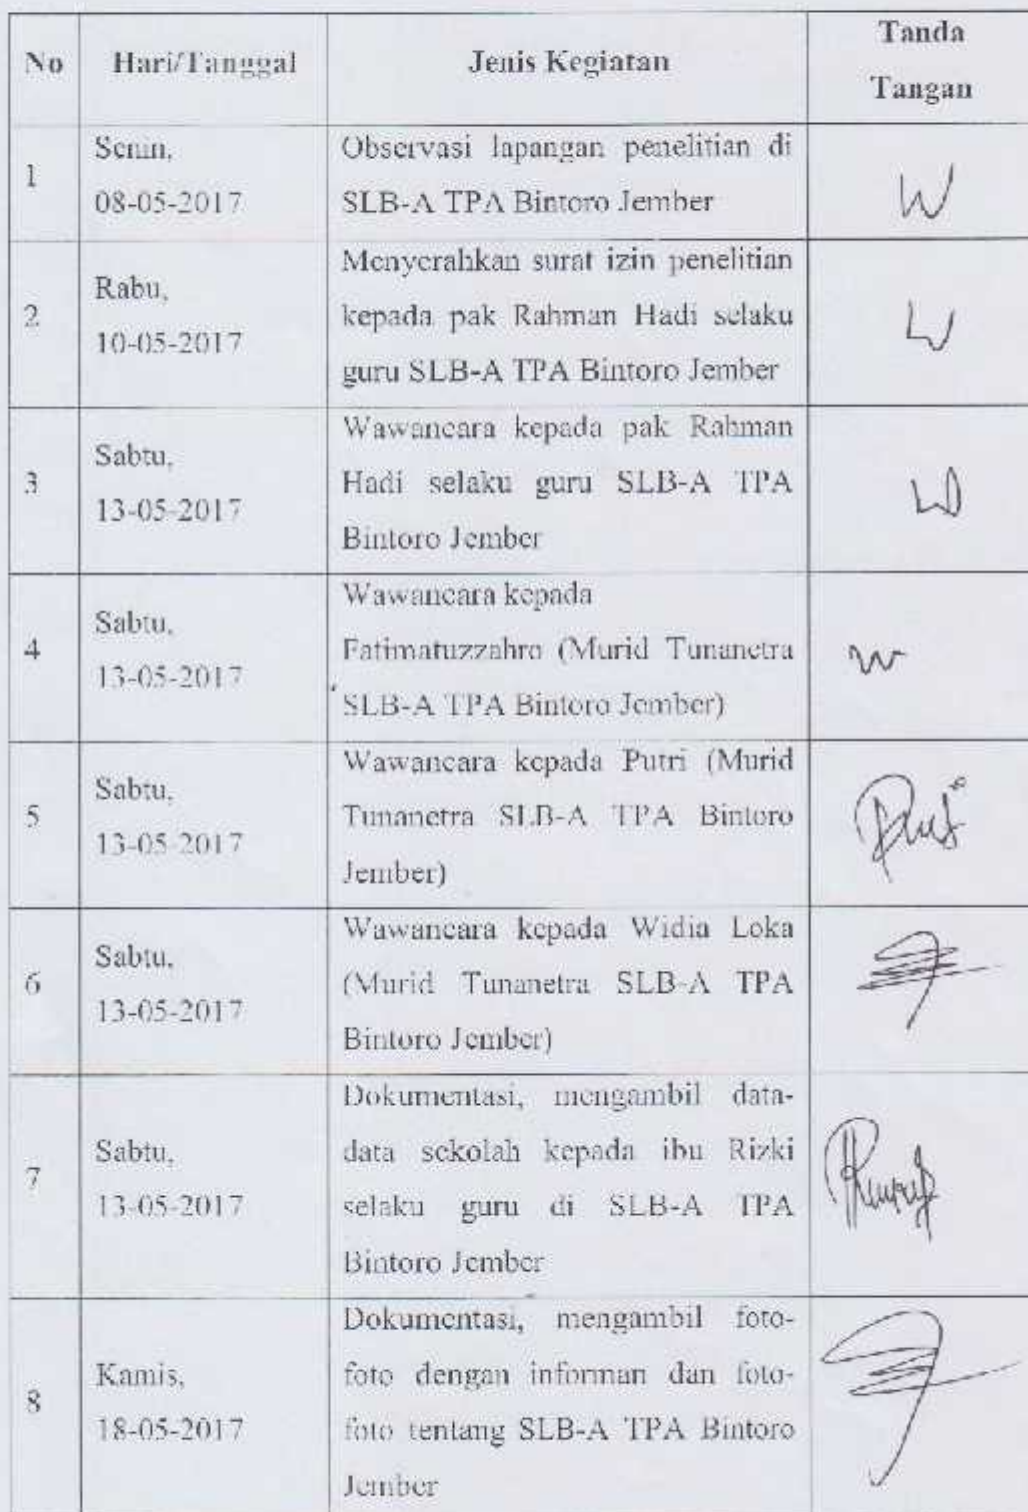 No Hari/Tanggal Jenis Kegiatan Tanda
Tangan
1 Senin,
08-05-2017
Observasi lapangan penelitian di
SLB-A TPA Bintoro Jember
2 Rabu,
10-05-2017
Menyerahkan surat izin penelitian
kepada pak Rahman Hadi selaku
guru SLB-A TPA Bintoro Jember
3 Sabtu,
13-05-2017
Wawancara kepada pak Rahman
Hadi selaku guru SLB-A TPA
Bintoro Jember
4 Sabtu,
13-05-2017
Wawancara kepada
Fatimatuzzahro (Murid Tunanetra
SLB-A TPA Bintoro Jember)
5 Sabtu,
13-05-2017
Wawancara kepada Putri (Murid
Tunanetra SLB-A TPA Bintoro
Jember)
6 Sabtu,
13-05-2017
Wawancara kepada Widia Loka
(Murid Tunanetra SLB-A TPA
Bintoro Jember)
7 Sabtu,
13-05-2017
Dokumentasi, mengambil data-
data sekolah kepada ibu Rizki
selaku guru di SLB-A TPA
Bintoro Jember
8 Kamis,
18-05-2017
Dokumentasi, mengambil foto-
foto dengan informan dan foto-
foto tentang SLB-A TPA Bintoro
Jember